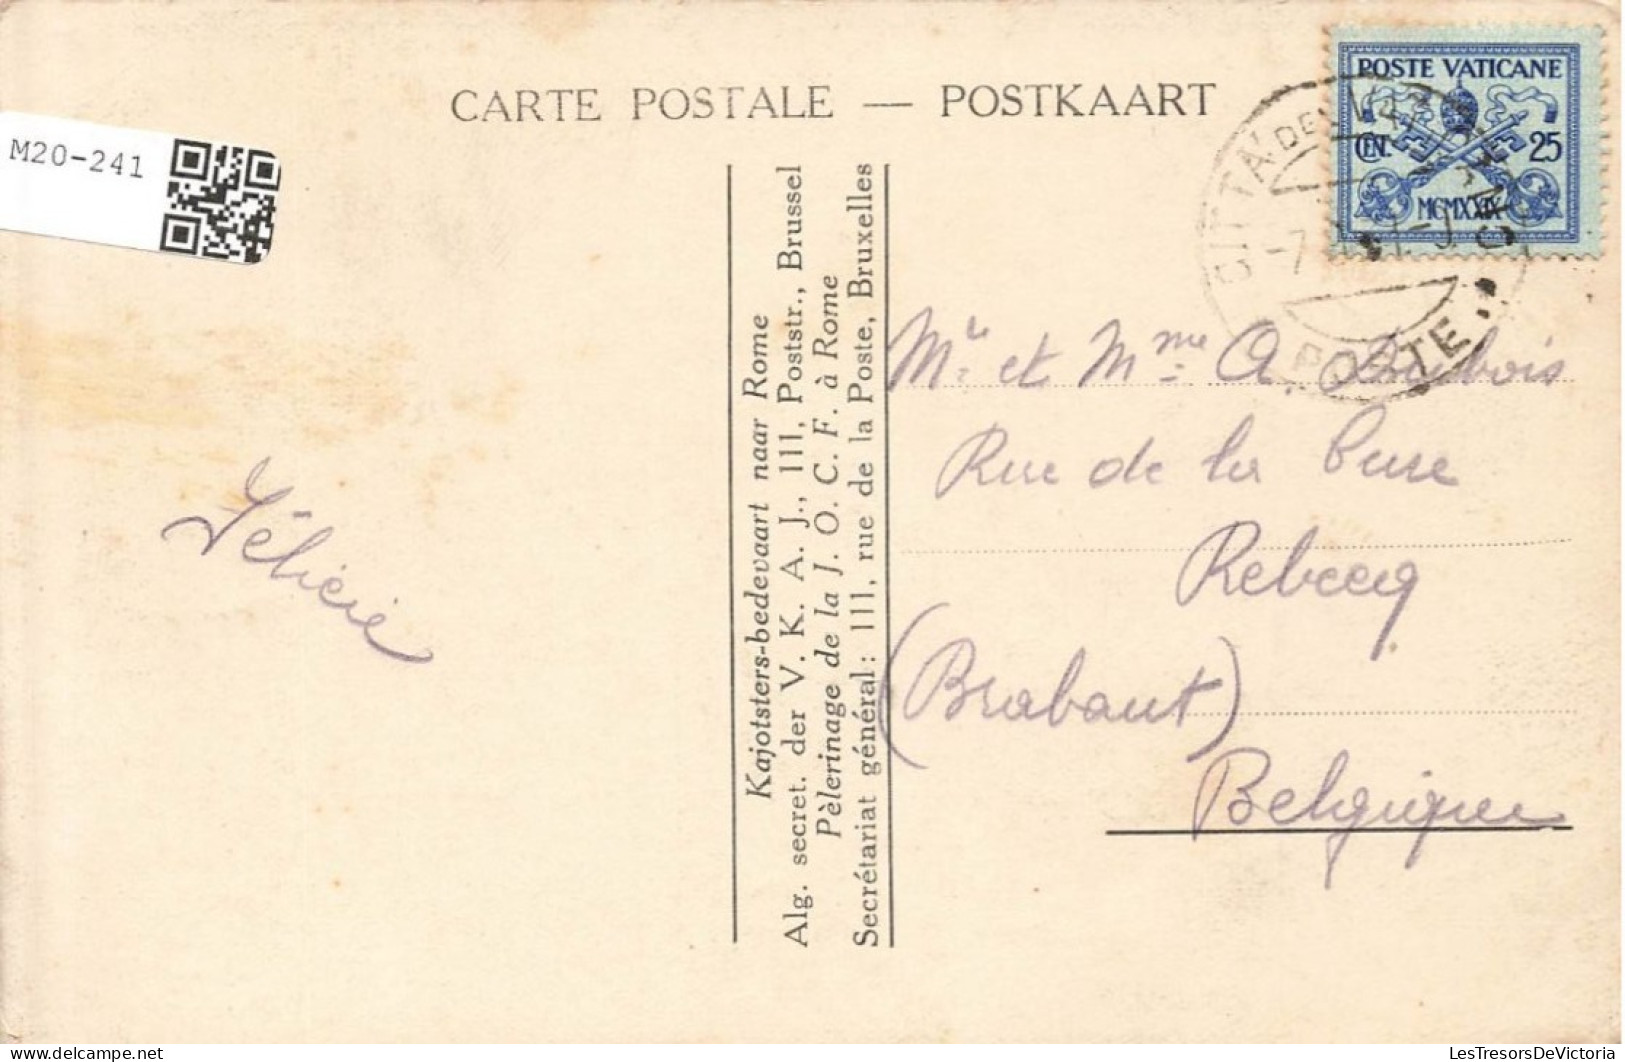 CARTE POSTALE — POSTKAART
M20-241
POSTE VATICANE
CEN. 25
CITTA' DEL VATICANO
POSTE
Kajotsters-bedevaart naar Rome
Alg. secret. der V. K. A. J., 111, Poststr., Brussel
Pèlerinage de la J. O. C. F. à Rome
Secrétariat général: 111, rue de la Poste, Bruxelles
Mr. et Mme A. Dubois
Rue de la Cure
Rebecq
(Brabant)
Belgique
Félicie
LesTresorsDeVictoria